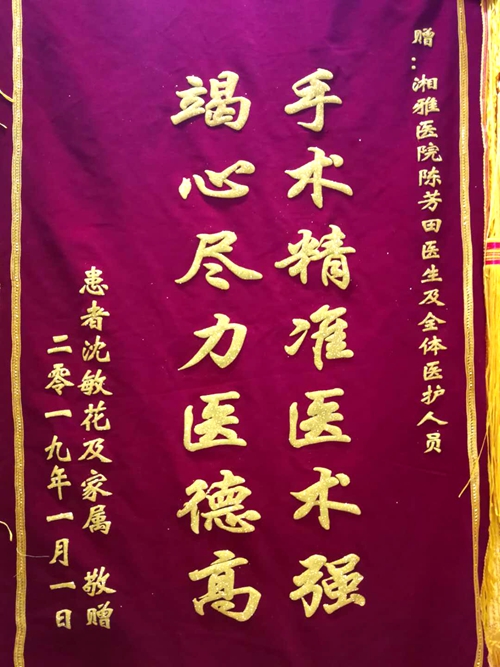 赠：湘雅医院陈芳田医生及全体医护人员
手术精准医术强
竭心尽力医德高
患者沈敏花及家属 敬赠
二零一九年一月一日